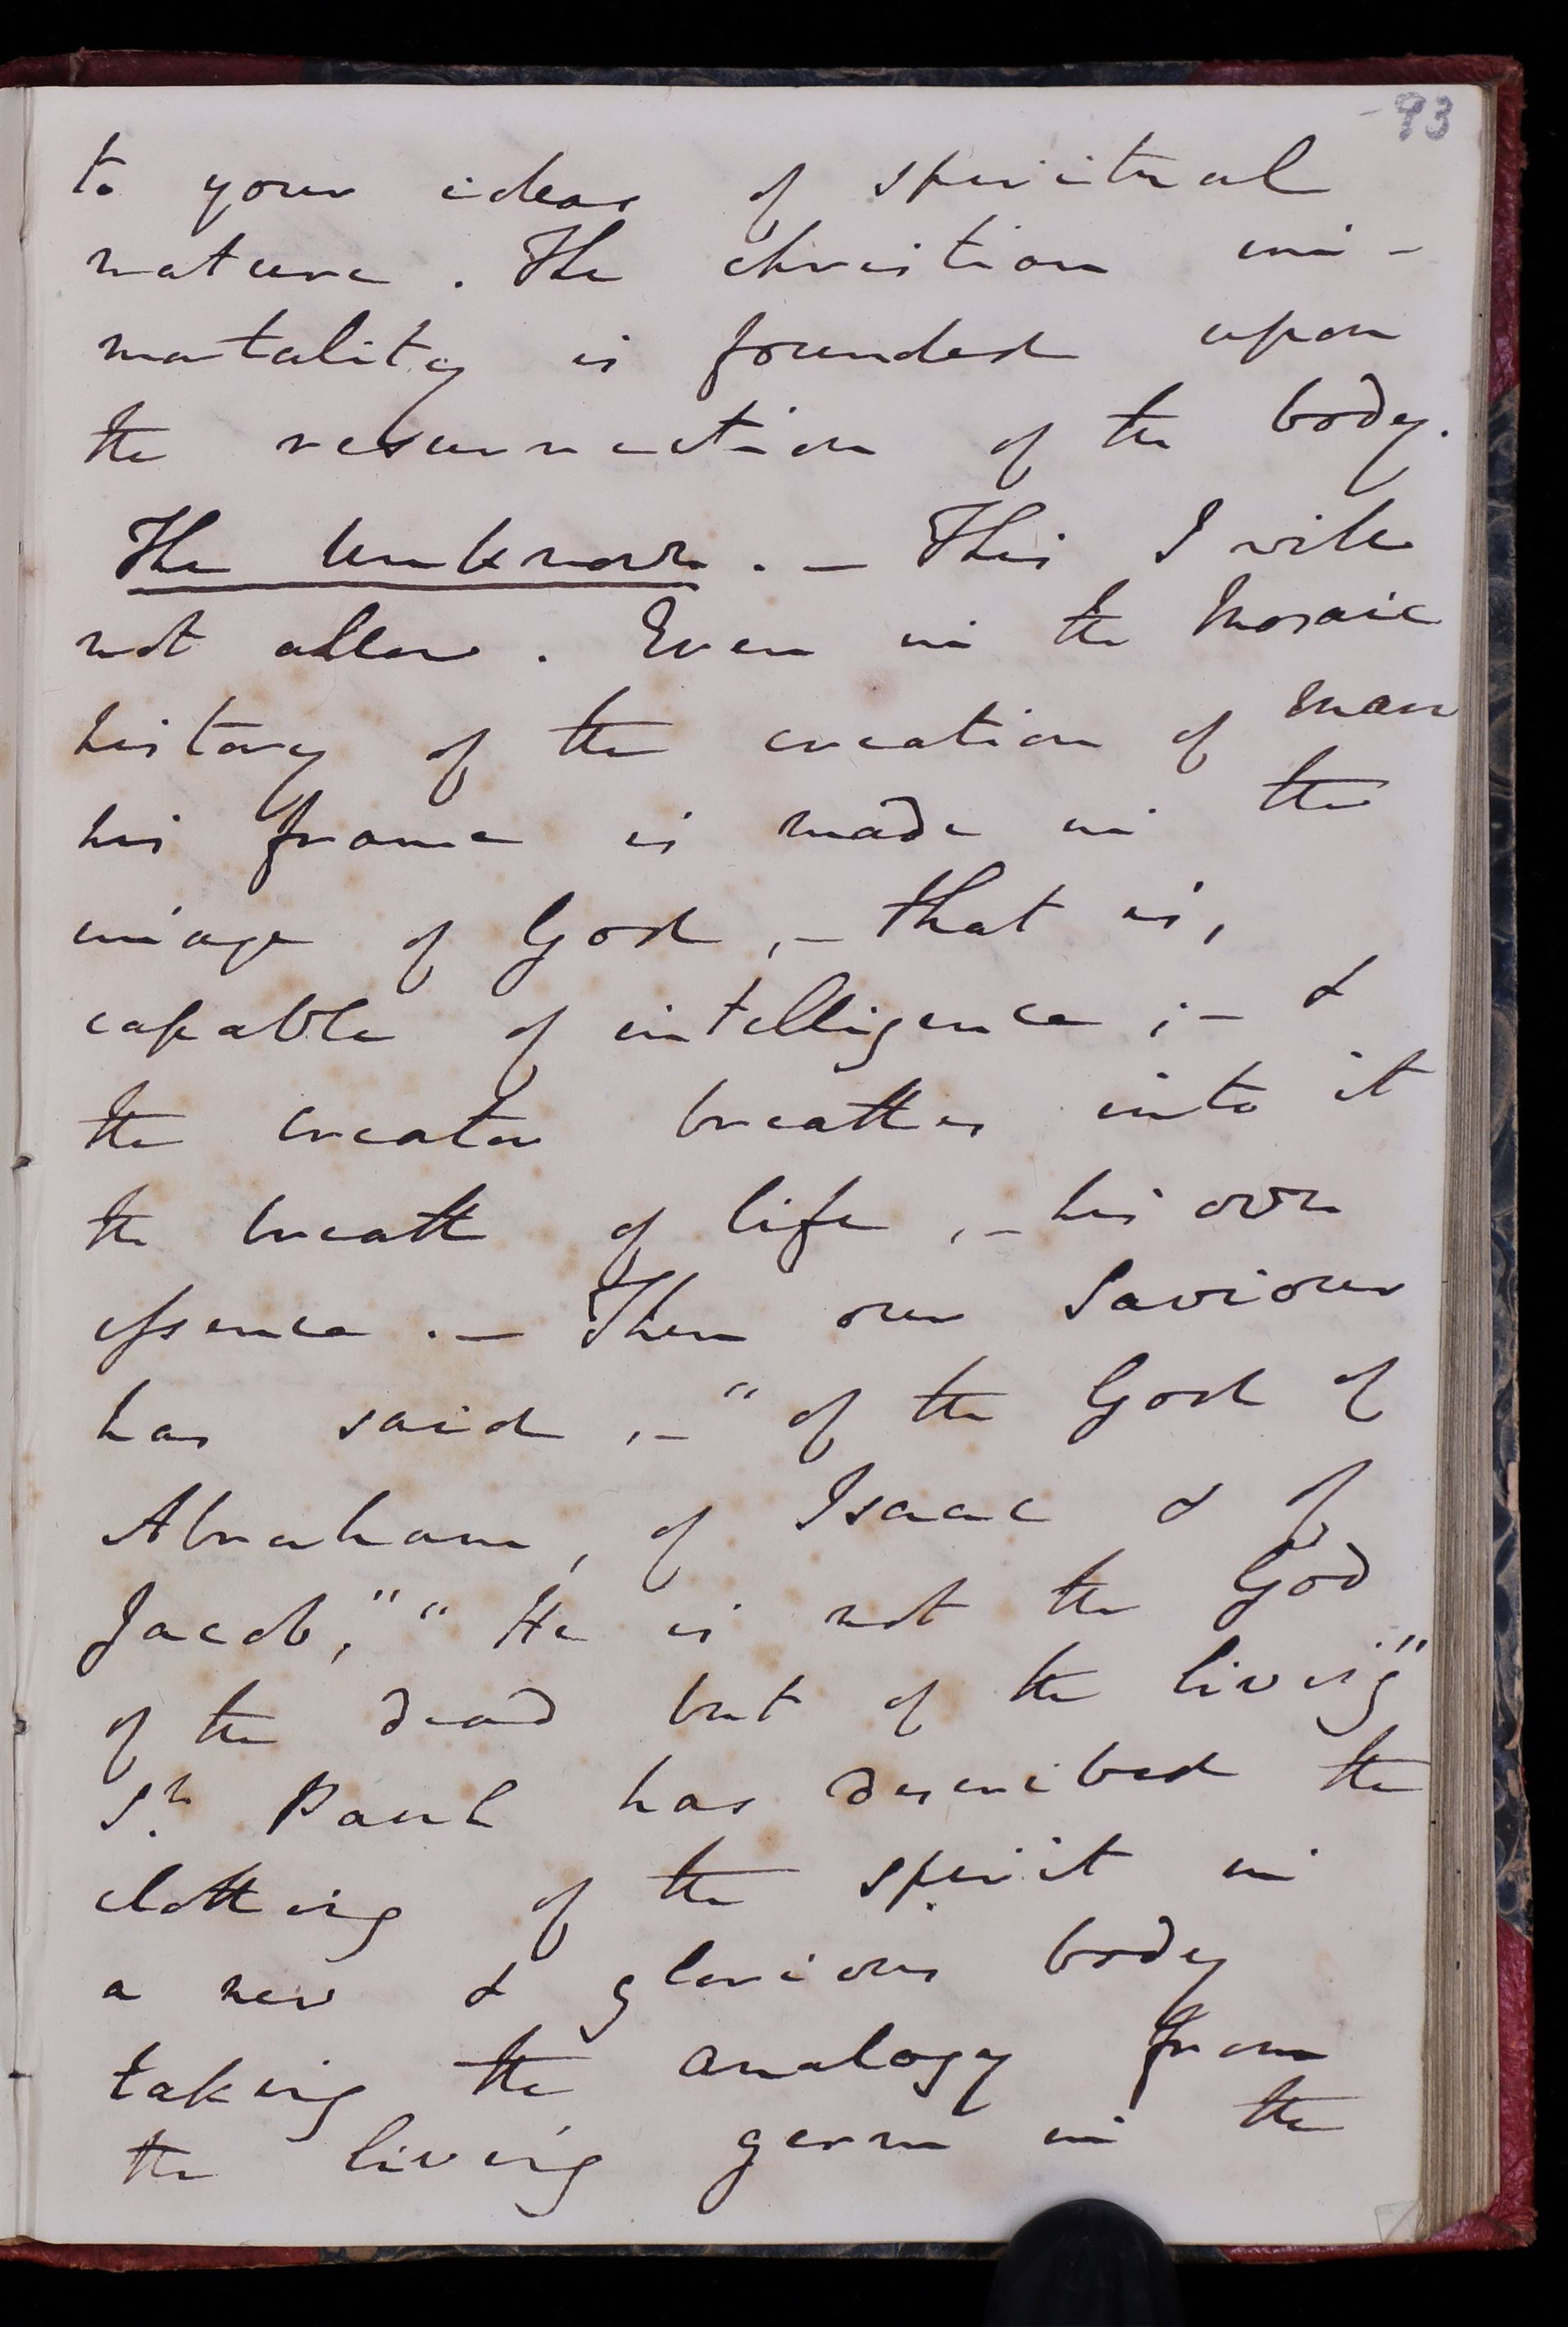 93
to your ideas of spiritual
nature. The christian im-
mortality is founded upon
the resurrection of the body.
The Unknown. - This I will
not allow. Even in the Mosaic
history of the creation of man
his frame is made in the
image of God, - that is,
capable of intelligence; - &
the creator breathes into it
the breath of life, - his own
essence. - Then our Saviour
has said, - "of the God of
Abraham, of Isaac & of
Jacob," "He is not the God
of the dead but of the living"
St. Paul has described the
clothing of the spirit in
a new & glorious body
taking the analogy from
the living germ in the